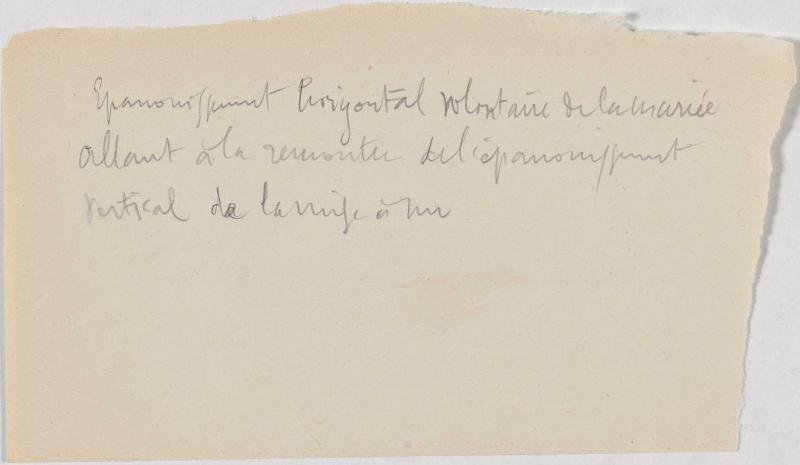 Epanouissement horizontal volontaire de la mariée
allant à la remontée de l'épanouissement
vertical de la mise à nu